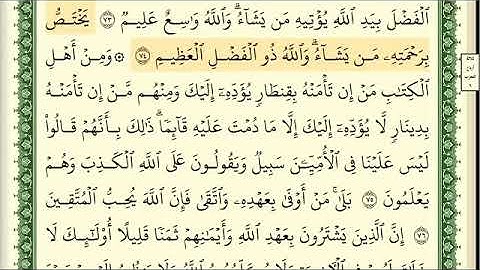 ٱلۡفَضۡلَ بِيَدِ ٱللَّهِ يُؤۡتِيهِ مَن يَشَآءُۗ وَٱللَّهُ وَٰسِعٌ عَلِيمٌ ٧٣ يَخۡتَصُّ
بِرَحۡمَتِهِۦ مَن يَشَآءُۗ وَٱللَّهُ ذُو ٱلۡفَضۡلِ ٱلۡعَظِيمِ ٧٤ ۞ وَمِنۡ أَهۡلِ
ٱلۡكِتَٰبِ مَنۡ إِن تَأۡمَنۡهُ بِقِنطَارٖ يُؤَدِّهِۦٓ إِلَيۡكَ وَمِنۡهُم مَّنۡ إِن تَأۡمَنۡهُ
بِدِينَارٖ لَّا يُؤَدِّهِۦٓ إِلَيۡكَ إِلَّا مَا دُمۡتَ عَلَيۡهِ قَآئِمٗاۗ ذَٰلِكَ بِأَنَّهُمۡ قَالُواْ
لَيۡسَ عَلَيۡنَا فِي ٱلۡأُمِّيِّـۧنَ سَبِيلٞ وَيَقُولُونَ عَلَى ٱللَّهِ ٱلۡكَذِبَ وَهُمۡ
يَعۡلَمُونَ ٧٥ بَلَىٰۚ مَنۡ أَوۡفَىٰ بِعَهۡدِهِۦ وَٱتَّقَىٰ فَإِنَّ ٱللَّهَ يُحِبُّ ٱلۡمُتَّقِينَ
٧٦ إِنَّ ٱلَّذِينَ يَشۡتَرُونَ بِعَهۡدِ ٱللَّهِ وَأَيۡمَٰنِهِمۡ ثَمَنٗا قَلِيلًا أُوْلَٰٓئِكَ لَا